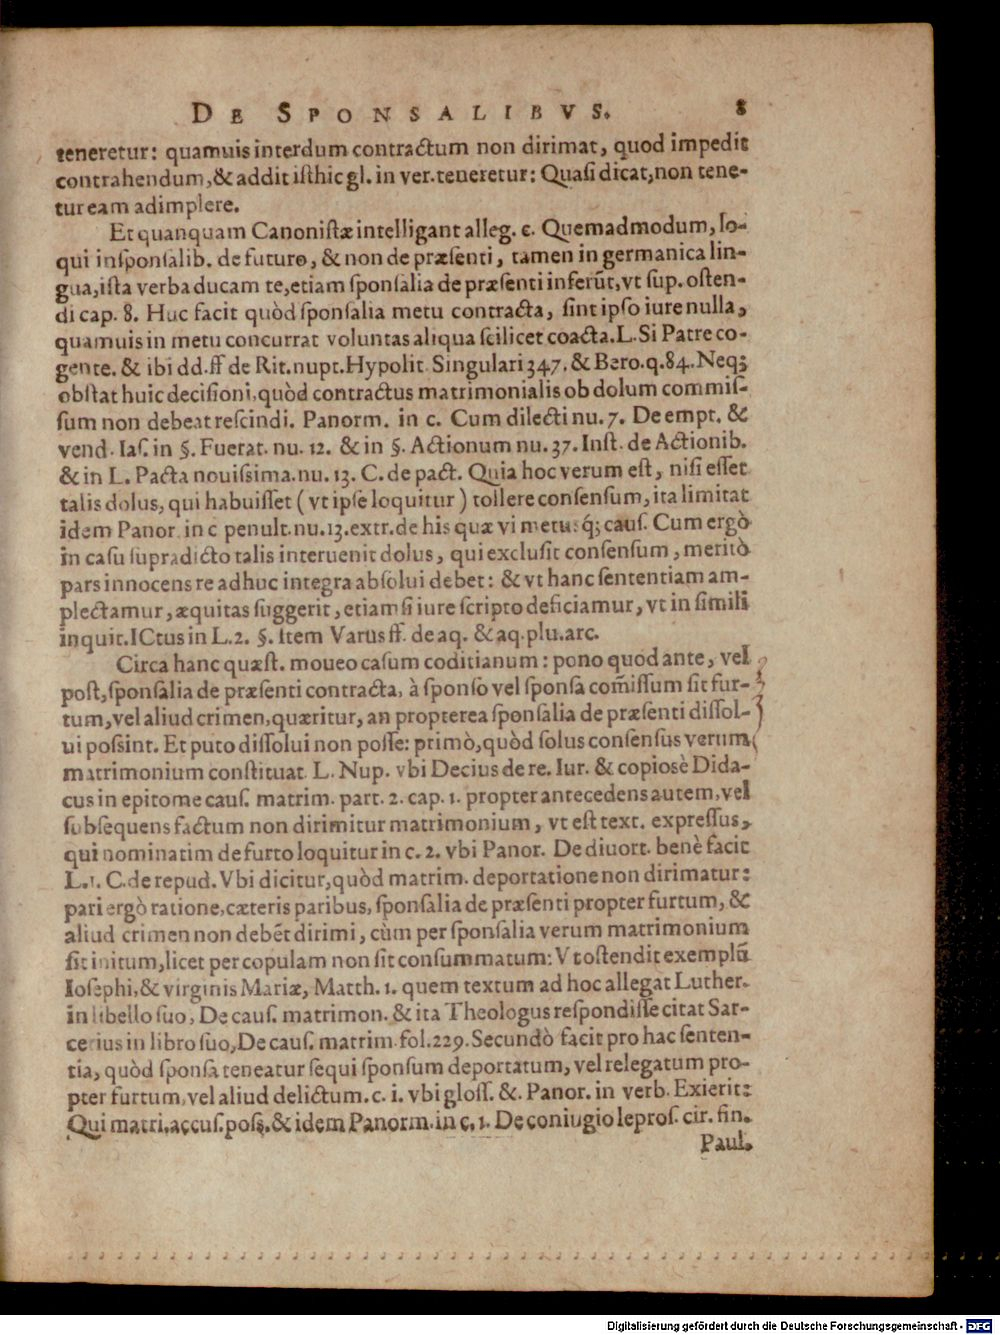 DE SPONSALIBVS. 8
teneretur: quamuis interdum contractum non dirimat, quod impedit
contrahendum, & addit isthic gl. in ver. teneretur: Quasi dicat, non tene-
tur eam adimplere.
Et quanquam Canonistæ intelligant alleg. c. Quemadmodum, lo-
qui in sponsalib. de futuro, & non de præsenti, tamen in germanica lin-
gua, ista verba ducam te, etiam sponsalia de præsenti inferũt, vt sup. osten-
di cap. 8. Huc facit quòd sponsalia metu contracta, sint ipso iure nulla,
quamuis in metu concurrat voluntas aliqua scilicet coacta. L. Si Patre co-
gente. & ibi dd. ff de Rit. nupt. Hypolit. Singulari 347. & Bero. q. 84. Neq;
obstat huic decisioni, quòd contractus matrimonialis ob dolum commis-
sum non debeat rescindi. Panorm. in c. Cum dilecti nu. 7. De empt. &
vend. Ias. in §. Fuerat. nu. 12. & in §. Actionum nu. 37. Inst. de Actionib.
& in L. Pacta nouissima. nu. 13. C. de pact. Quia hoc verum est, nisi esset
talis dolus, qui habuisset (vt ipse loquitur) tollere consensum, ita limitat
idem Panor. in c penult. nu. 13. extr. de his quæ vi metus q; caus. Cum ergò
in casu supradicto talis interuenit dolus, qui exclusit consensum, meritò
pars innocens re adhuc integra absolui debet: & vt hanc sententiam am-
plectamur, æquitas suggerit, etiam si iure scripto deficiamur, vt in simili
inquit. ICtus in L. 2. §. Item Varus ff. de aq. & aq. plu. arc.
Circa hanc quæst. moueo casum coditianum: pono quod ante, vel
post, sponsalia de præsenti contracta, à sponso vel sponsa com̃issum sit fur-
tum, vel aliud crimen, quæritur, an propterea sponsalia de præsenti dissol-
ui possint. Et puto dissolui non posse: primò, quòd solus consensus verum
matrimonium constituat. L. Nup. vbi Decius de re. Iur. & copiosè Dida-
cus in epitome caus. matrim. part. 2. cap. 1. propter antecedens autem, vel
subsequens factum non dirimitur matrimonium, vt est text. expressus,
qui nominatim de furto loquitur in c. 2. vbi Panor. De diuort. benè facit
L. 1. C. de repud. Vbi dicitur, quòd matrim. deportatione non dirimatur:
pari ergò ratione, cæteris paribus, sponsalia de præsenti propter furtum, &
aliud crimen non debẽt dirimi, cùm per sponsalia verum matrimonium
sit initum, licet per copulam non sit consummatum: Vt ostendit exemplũ
Iosephi, & virginis Mariæ, Matth. 1. quem textum ad hoc allegat Luther.
in libello suo, De caus. matrimon. & ita Theologus respondisse citat Sar-
cerius in libro suo, De caus. matrim. fol. 229. Secundò facit pro hac senten-
tia, quòd sponsa teneatur sequi sponsum deportatum, vel relegatum pro-
pter furtum, vel aliud delictum. c. i. vbi gloss. &. Panor. in verb. Exierit:
Qui matri. accus. poss. & idem Panorm. in c. 1. De coniugio lepros. cir. fin.
Paul.
Digitalisierung gefördert durch die Deutsche Forschungsgemeinschaft - DFG